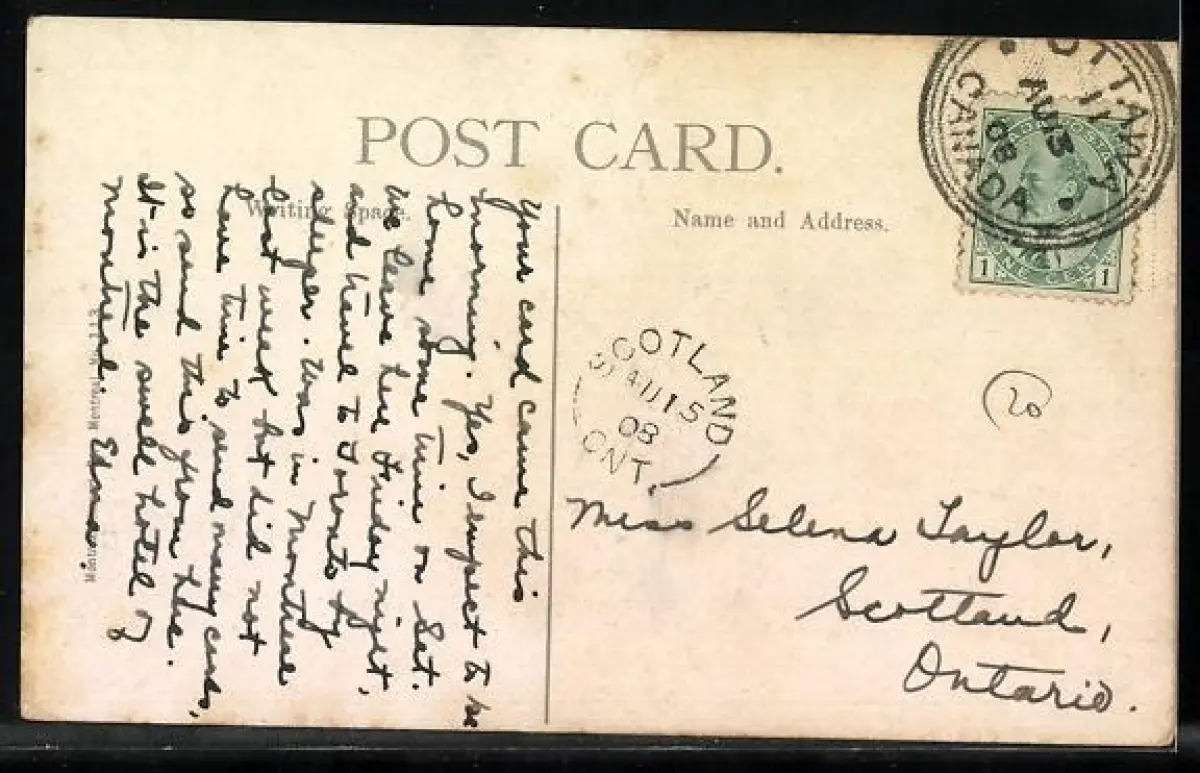 POST CARD.
Writing Space.
Name and Address.
OTTAWA
11
AU 13
08
CANADA
1 ONE CENT 1
SCOTLAND
AU 15
08
ONT.
20
Miss Selena Taylor,
Scotland,
Ontario.
Your card came this
morning. Yes, I expect to be
home some time on Sat.
We leave here Friday night,
and travel to Toronto by
sleeper. Was in Montreal
last week but did not
have time to send many cards,
so send this from here.
It is the swell hotel of
Montreal. Edna.
Montreal